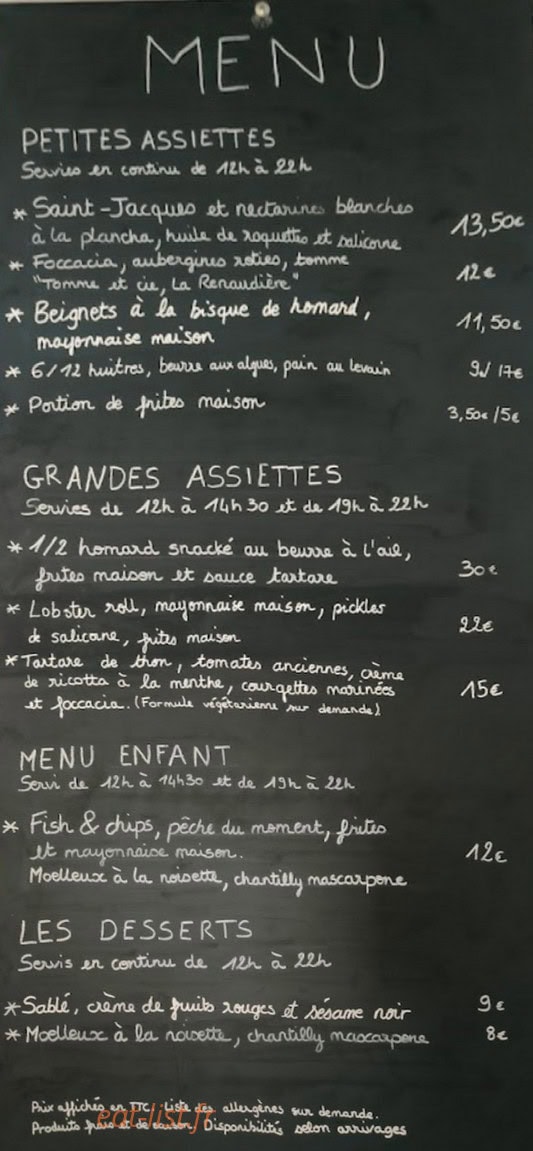 MENU
PETITES ASSIETTES
Servies en continu de 12h à 22h
* Saint-Jacques et nectarines blanches
à la plancha, huile de roquettes et salicorne 13,50€
* Foccacia, aubergines roties, tomme
"Tomme et cie, La Renaudière" 12€
* Beignets à la bisque de homard,
mayonnaise maison 11,50€
* 6/12 huitres, beurre aux algues, pain au levain 9€/ 17€
* Portion de frites maison 3,50€/5€
GRANDES ASSIETTES
Servies de 12h à 14h30 et de 19h à 22h
* 1/2 homard snacké au beurre à l'ail,
frites maison et sauce tartare 30€
* Lobster roll, mayonnaise maison, pickles
de salicorne, frites maison 22€
* Tartare de thon, tomates anciennes, crème
de ricotta à la menthe, courgettes marinées 15€
et foccacia. (Formule végétarienne sur demande)
MENU ENFANT
Servi de 12h à 14h30 et de 19h à 22h
* Fish & chips, pêche du moment, frites
et mayonnaise maison. 12€
Moelleux à la noisette, chantilly mascarpone
LES DESSERTS
Servis en continu de 12h à 22h
* Sablé, crème de fruits rouges et sésame noir 9€
* Moelleux à la noisette, chantilly mascarpone 8€
Prix affichés en TTC. Liste des allergènes sur demande.
eat-list.fr
Produits frais et de saison. Disponibilités selon arrivages